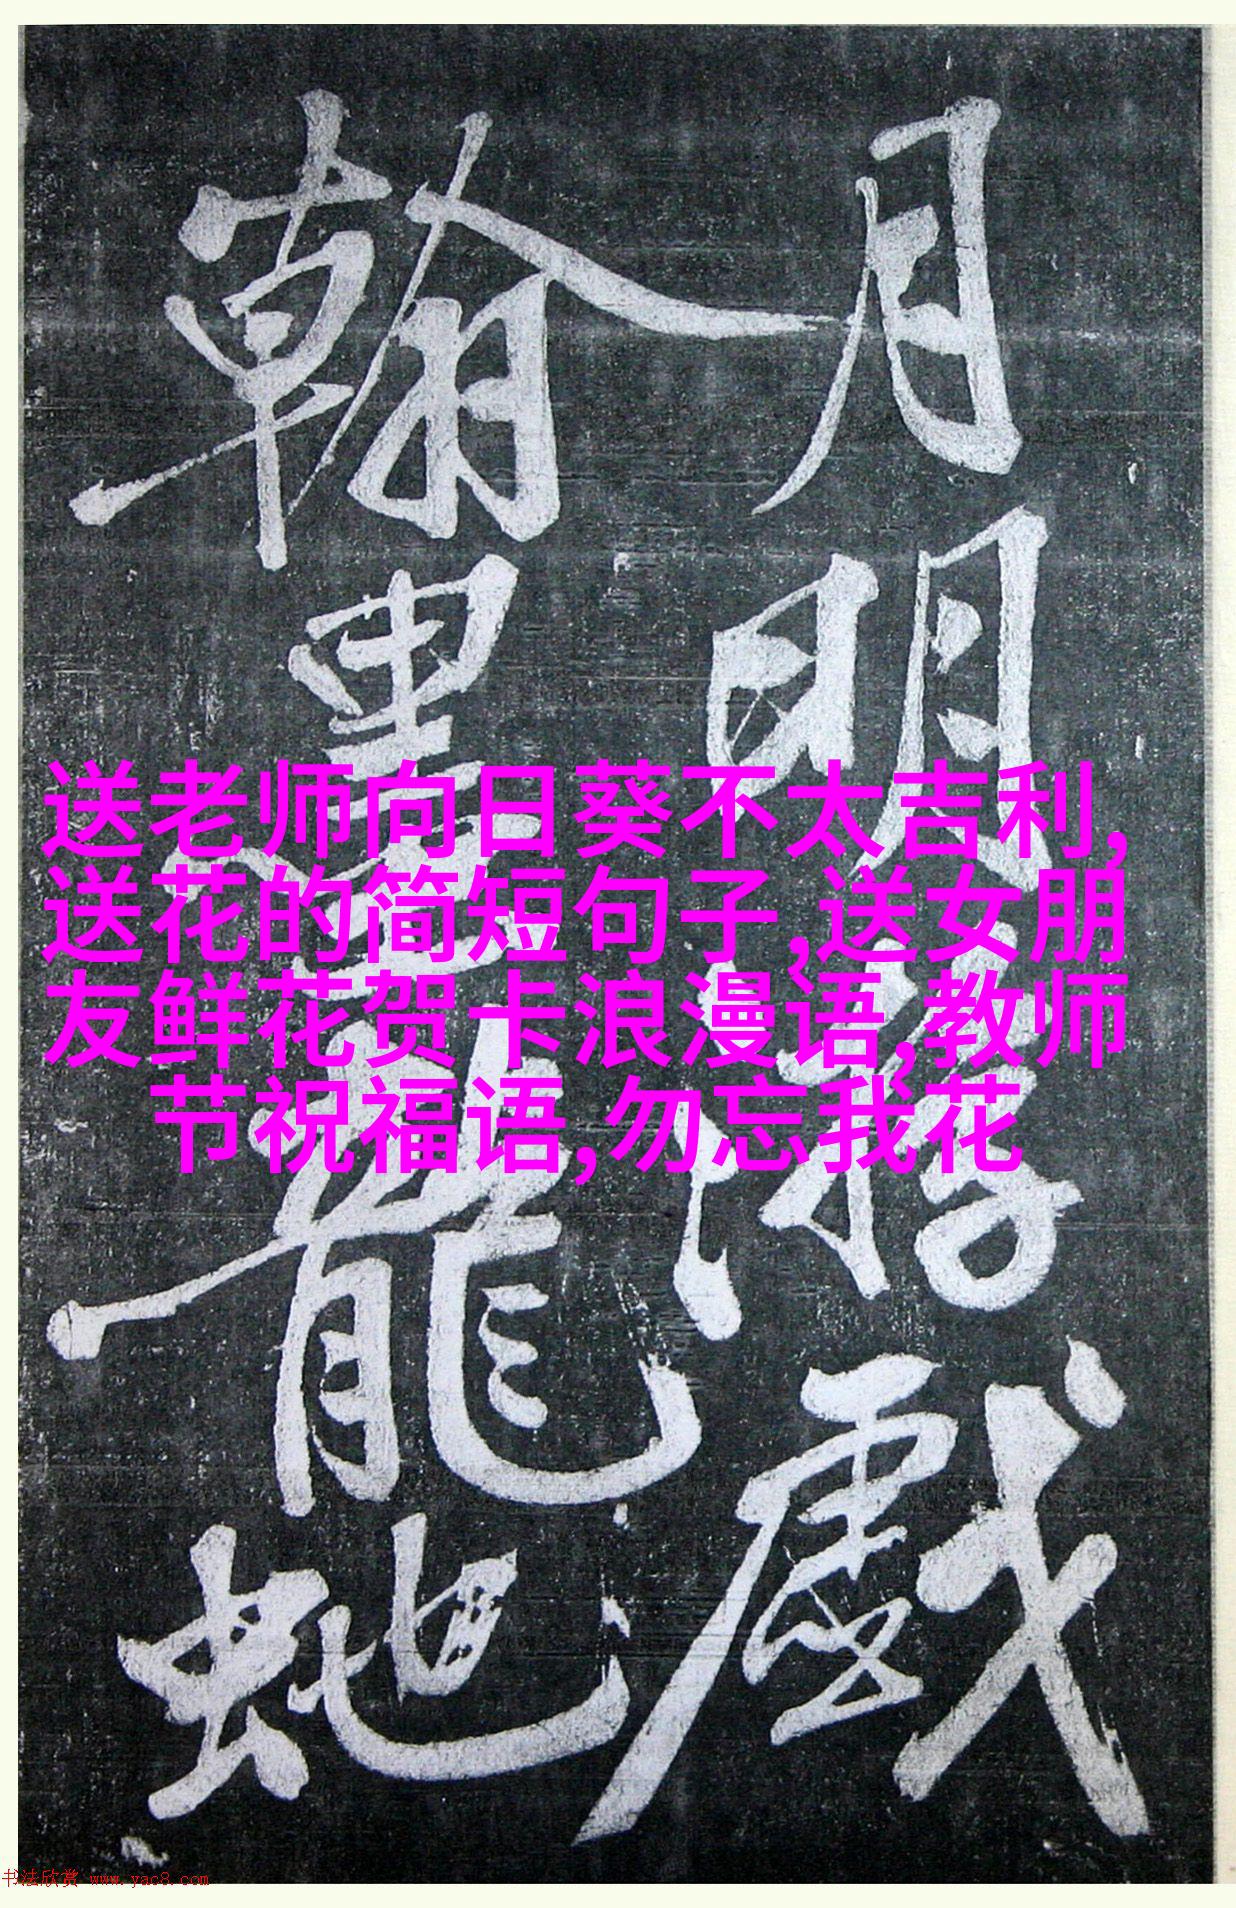 月明游戲
翰墨龍蛇
送老师向日葵不太吉利,
送花的简短句子,送女朋
友鲜花贺卡浪漫语,教师
节祝福语,勿忘我花
书法欣赏 www.yac8.com